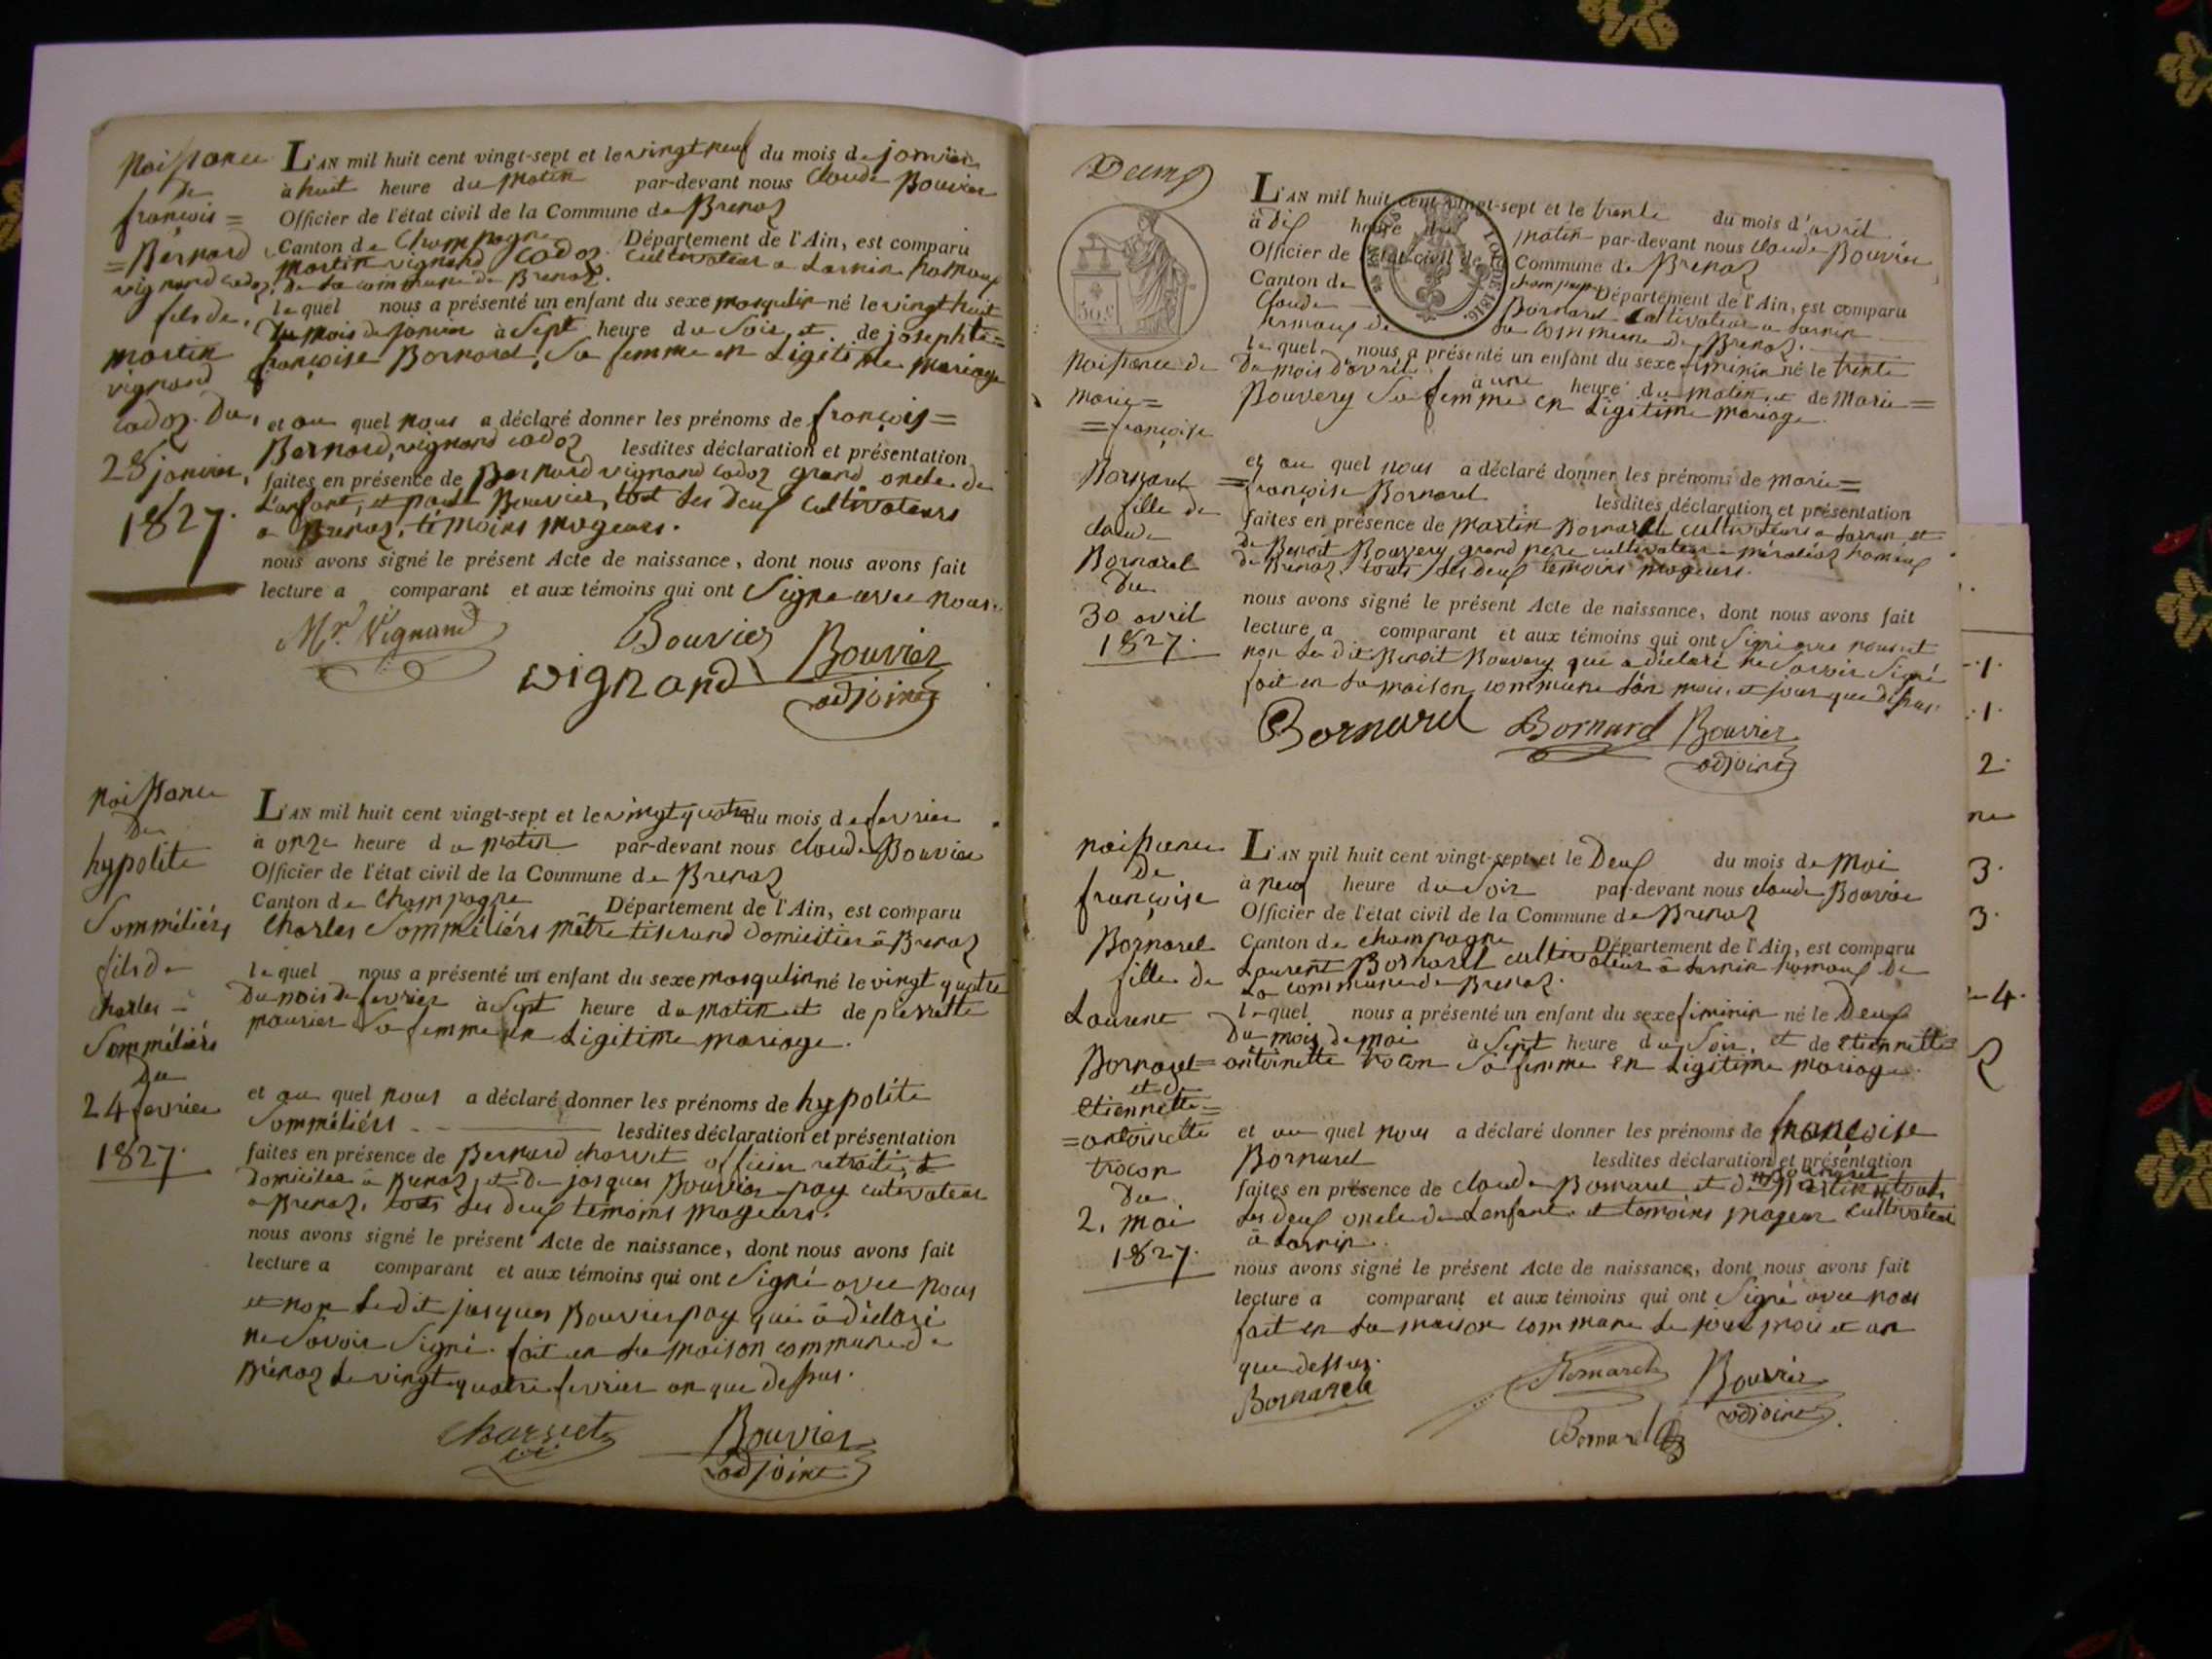 Naissance
de
françois =
= Bernard
vignand cadoz,
fils de,
martin
vignand
cadoz. Du,
28 janvier,
1827.
L'AN mil huit cent vingt-sept et le vingt neuf du mois de janvier
à huit heure du matin par-devant nous claude Bouvier
Officier de l'état civil de la Commune de Brenaz
Canton de Champagne Département de l'Ain, est comparu
martin vignand cadoz cultivateur a Larnin hamaux
de la commune de Brenaz.
le quel nous a présenté un enfant du sexe masqulin né le vingt huit
du mois de janvier à Sept heure du Soir et de joséphte =
françoise Bornard, Sa femme en Ligitime mariage
et au quel nous a déclaré donner les prénoms de françois =
Bernard, vignand cadoz lesdites déclaration et présentation
faites en présence de Bernard vignand cadoz grand oncle de
L'anfant, et paul Bouvier, tout Les deux cultivateurs
a Brenaz, témoins mageurs.
nous avons signé le présent Acte de naissance, dont nous avons fait
lecture a comparant et aux témoins qui ont Signe avec nous.
Mr. Vignand Bouvier
vignand Bouvier
adjoint
naissance
De
hypolite
Somméliérs
fils de
charles =
Somméliérs
Du
24 fevrier
1827.
L'AN mil huit cent vingt-sept et le vingt quatre du mois de fevrier
à onze heure du matin par-devant nous claude Bouvier
Officier de l'état civil de la Commune de Brenaz
Canton de Champagne Département de l'Ain, est comparu
Charles Somméliérs mêtre tiserand domicilier à Brenaz
le quel nous a présenté un enfant du sexe masqulin né le vingt quatre
du mois de fevrier à Sept heure du matin et de pierrette
mourier Sa femme en Ligitime mariage.
et au quel nous a déclaré donner les prénoms de hypolite
Somméliérs lesdites déclaration et présentation
faites en présence de Bernard charvet officier retraité, d
domicilee à Brenaz, et de jasques Bouvier pay cutivateur
a Brenaz, tous Les deux témoins mageurs.
nous avons signé le présent Acte de naissance, dont nous avons fait
lecture a comparant et aux témoins qui ont Signé avec nous
et non Le dit jasques Bouvier pay qui à déclaré
ne Savoir Signé. fait en La maison commune de
Brénaz Le vingt quatre fevrier an que dessus.
Charvet Bouvier
adjoint
Deux
50 c
TIMBRE ROYAL
LOI DE 1816.
Naissance de
marie =
= françoise
Bornarel
fille de
claude
Bornarel
Du
30 avril
1827.
L'AN mil huit cent vingt-sept et le trente du mois d'avril
à dix heure du matin par-devant nous claude Bouvier
Officier de l'état civil de la Commune de Brenaz
Canton de champagne Département de l'Ain, est comparu
Claude Bornarel cultivateur a Larnin
hamaux de La commune de Brenaz.
le quel nous a présenté un enfant du sexe fiminin né le trente
Du mois d'avril à une heure du matin et de Marie =
Bouvery Sa femme en Ligitime mariage.
et au quel nous a déclaré donner les prénoms de marie =
= françoise Bornarel lesdites déclaration et présentation
faites en présence de martin Bornarel cultivateur a Larnin et
de Benoit Bouvery grand pere cultivateur a méraléaz hamaux
de Brenaz, touts Les deux témoins mageurs.
nous avons signé le présent Acte de naissance, dont nous avons fait
lecture a comparant et aux témoins qui ont Signé avec nous et
non Le dit Benoit Bouvery qui a déclaré ne Savoir Signé
fait en La maison commune L'an mois et jour que dessus.
Bornarel Bornard Bouvier
adjoint
naissance
De
françoise
Bornarel
fille de
Laurent
Bornarel =
et de
etiennette =
= antoinette
trocon
Du
2. mai
1827.
L'AN mil huit cent vingt-sept et le Deux du mois de Mai
à neuf heure du Soir par-devant nous claude Bouvier
Officier de l'état civil de la Commune de Brenaz
Canton de champagne Département de l'Ain, est comparu
Laurent Bornarel cultivateur à Larnin hamaux De
La commune de Brenaz.
le quel nous a présenté un enfant du sexe fiminin né le Deux
du mois de mai à Sept heure du Soir, et de etiennette
antoinette trocon Sa femme en Ligitime mariage.
et au quel nous a déclaré donner les prénoms de françoise
Bornarel lesdites déclaration et présentation
faites en présence de claude Bornarel et de martin touts
Les deux oncle de L'enfant et témoins mageur cultivateur
à Larnin.
nous avons signé le présent Acte de naissance, dont nous avons fait
lecture a comparant et aux témoins qui ont Signé avec nous
fait en La maison commune Le jour mois et an
que dessus.
Bornarel Bouvier
adjoint
Bornarel
1.
1.
2.
ne
3.
3.
4.